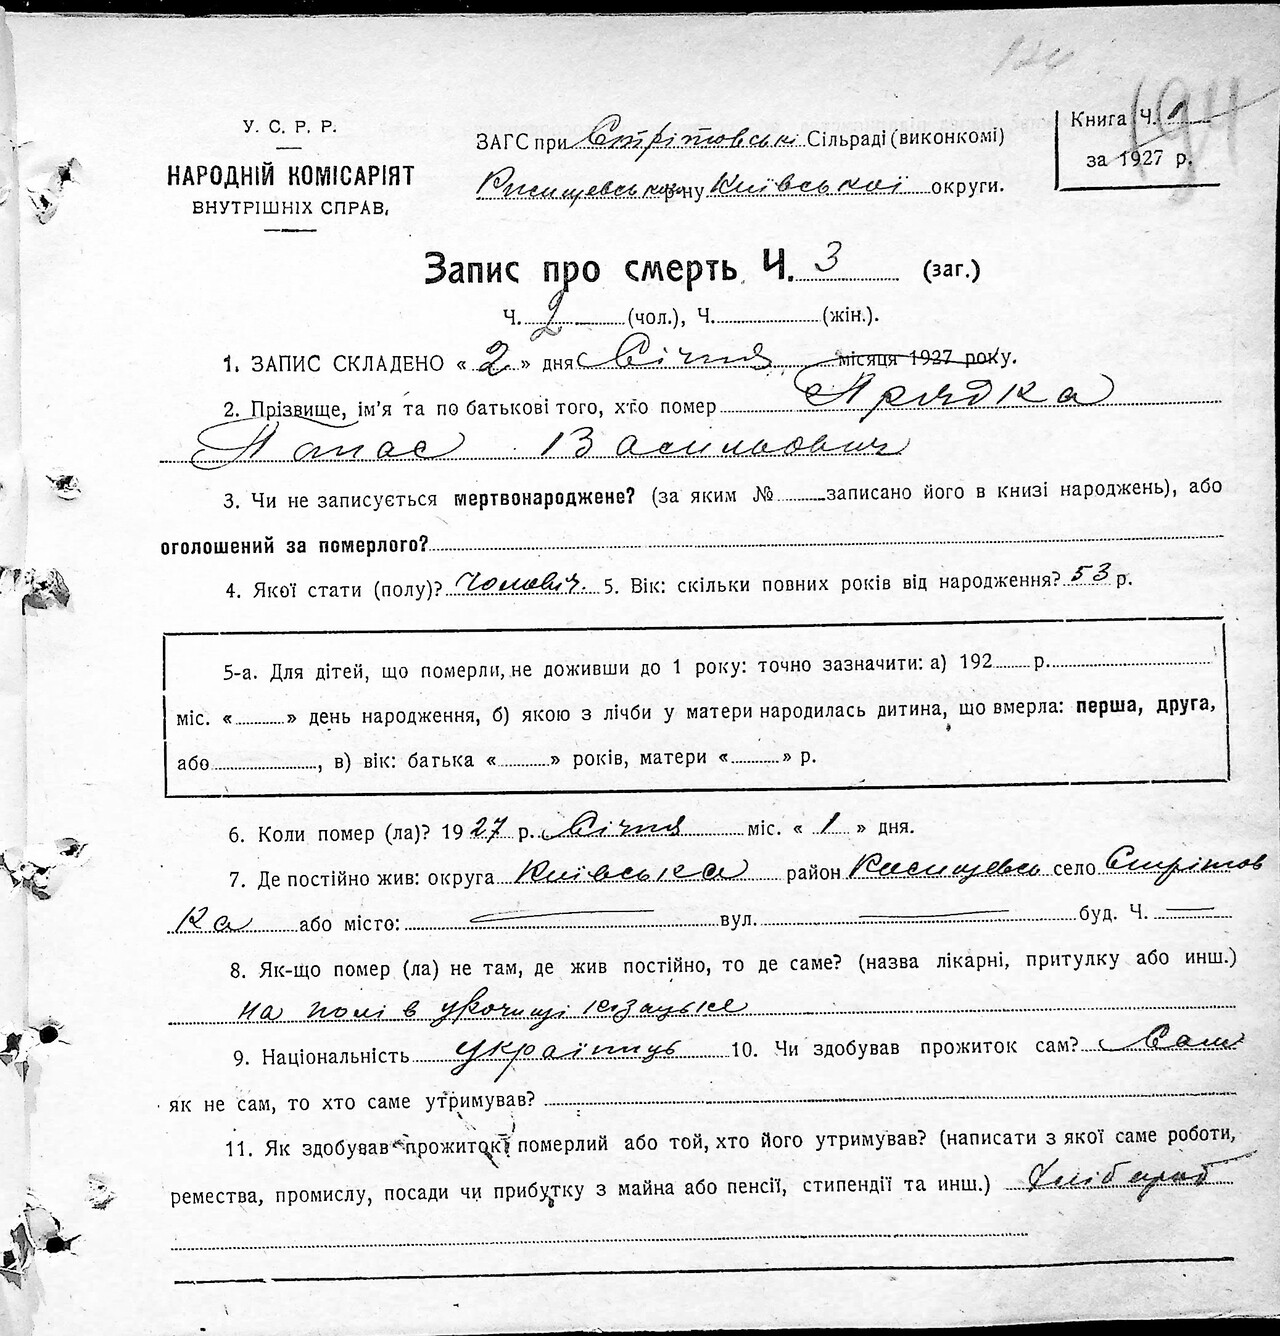 У. С. Р. Р.
НАРОДНІЙ КОМІСАРІЯТ
ВНУТРІШНІХ СПРАВ,
ЗАГС при Стрітовські Сільраді (виконкомі)
Ржищевськ. р-ну Київської округи.
Книга Ч. 1
за 1927 р.
194
Запис про смерть Ч. 3 (заг.)
Ч. 2 (чол.), Ч. (жін.).
1. ЗАПИС СКЛАДЕНО « 2 » дня Січня місяця 1927 року.
2. Прізвище, ім'я та по батькові того, хто помер
Панас Васильович
3. Чи не записується мертвонароджене? (за яким № записано його в книзі народжень), або
оголошений за померлого?
4. Якої стати (полу)? Чоловіч. 5. Вік: скільки повних років від народження? 53 р.
5-а. Для дітей, що померли, не доживши до 1 року: точно зазначити: а) 192 р.
міс. « » день народження, б) якою з лічби у матери народилась дитина, що вмерла: перша, друга,
або , в) вік: батька « » років, матери « » р.
6. Коли помер (ла)? 1927 р. Січня міс. « 1 » дня.
7. Де постійно жив: округа Київська район Ржищевсь село Стрітов
ка або місто: вул. буд. Ч.
8. Як-що помер (ла) не там, де жив постійно, то де саме? (назва лікарні, притулку або инш.)
на полі в урочищі козацьке
9. Національність українць 10. Чи здобував прожиток сам? Сам
як не сам, то хто саме утримував?
11. Як здобував прожиток померлий або той, хто його утримував? (написати з якої саме роботи,
ремества, промислу, посади чи прибутку з майна або пенсії, стипендії та инш.) Хлібороб